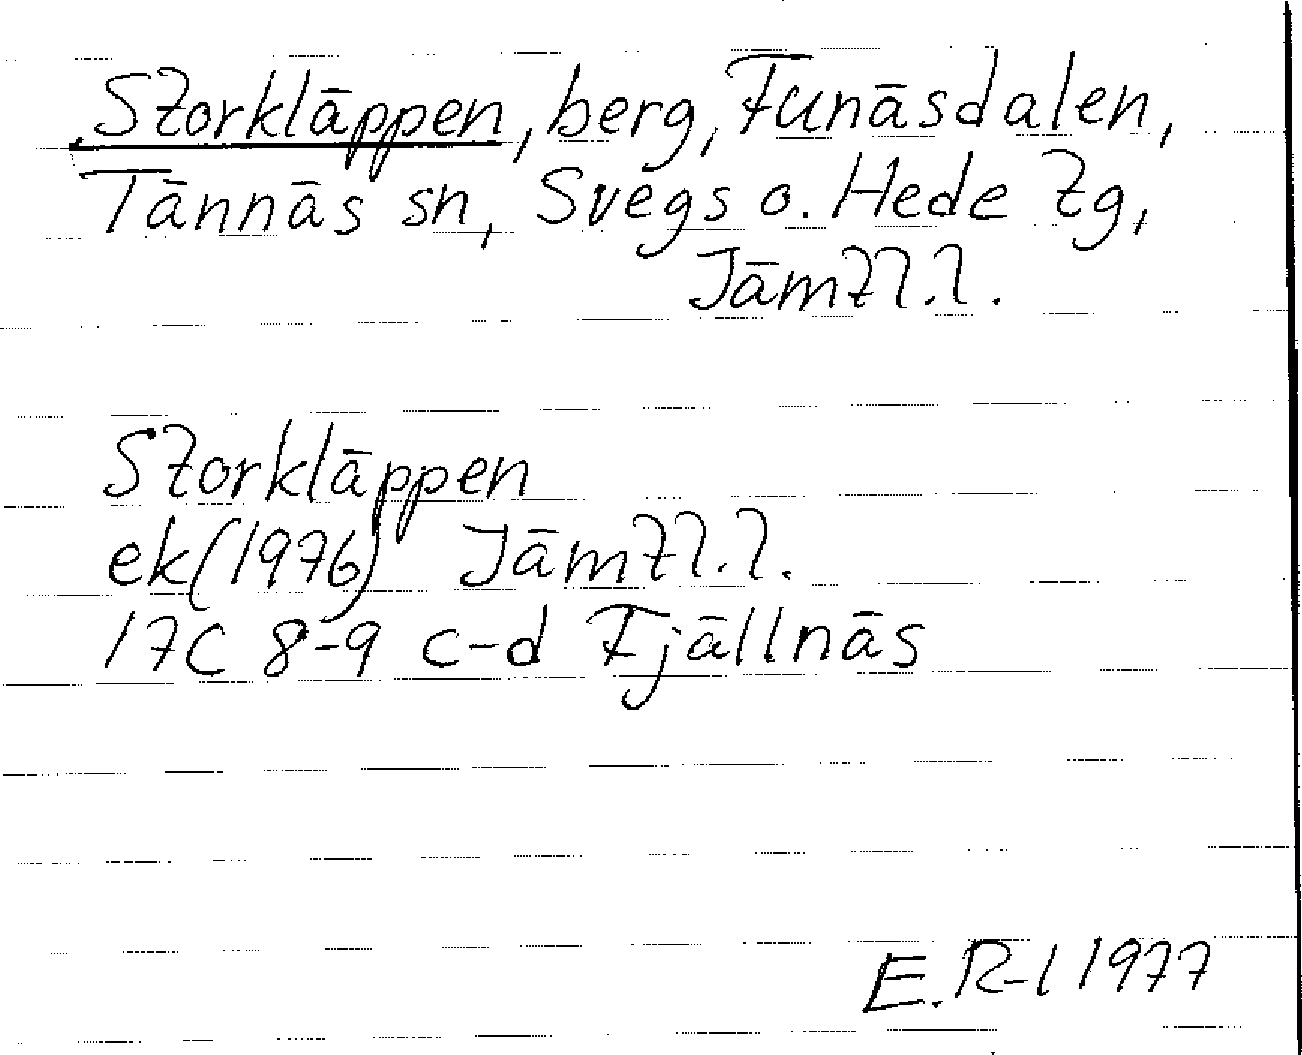 Storkläppen, berg, Funäsdalen,
Tännäs sn, Svegs o. Hede tg,
Jämtl. l.
Storkläppen
ek(1976) Jämtl. l.
17C 8-9 c-d Fjällnäs
E. R-l 1977